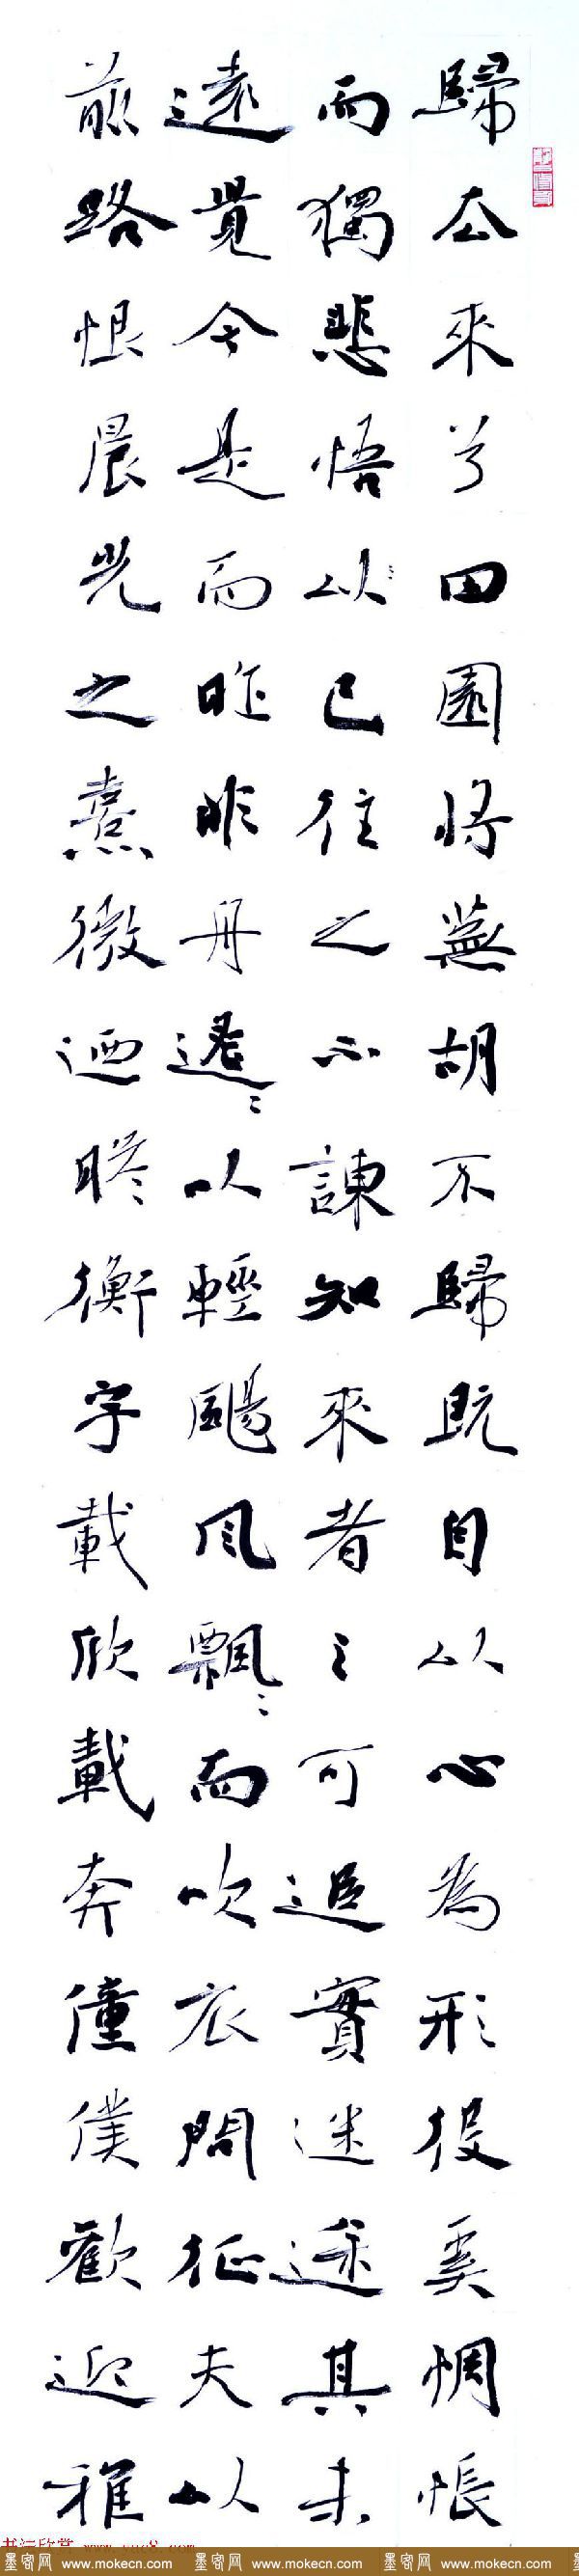 歸去來兮田園將蕪胡不歸既自以心為形役奚惆悵
而獨悲悟以已往之不諫知來者之可追實迷途其未
遠覺今是而昨非舟遙〻以輕颺風飄〻而吹衣問征夫以
前路恨晨光之熹微迺瞻衡宇載欣載奔僮僕歡迎稚
书法欣赏
墨客网 www.mokecn.com 墨客网 www.mokecn.com 墨客网 www.mokecn.com 墨客网 www.mokecn.com